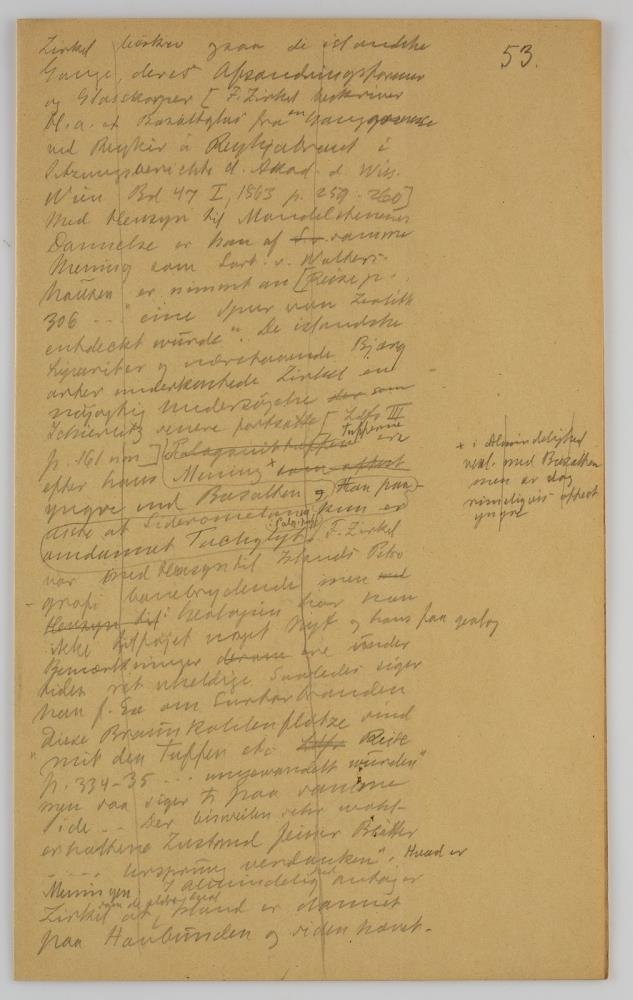 53.
Zirkel beskrev ogsaa de islandske
Gange, deres Afsondringsformer
og Glasskorper [F. Zirkel beskriver
bl. a. et Basaltglas fra en
ved Reykir à Reykjabraut i
Sitzungsberichte d. Akad. d. Wiss.
Wien Bd 47 I, 1863 p. 259-260]
Med Hensyn til Mandelstenenes
Dannelse er han af samme
Mening som Sart. v. Walters-
hausen er nimmt an [Reise p.
306 --- "eine Spur von Zeolith
entdeckt würde". De islandske
Lipariter og nærstaaende Bjærg
arter underkastede Zirkel en
nöjagtig Undersögelse der som
Schierlitz senere fortsatte [Ldfs III
p. 161 nm] Palagonittuffen Tufferne ere
efter hans Mening + som oftest
yngre end Basalten og Han paa-
viste at Sideromelan kun er
omdannet Tachylyt. F. Zirkel
var med Hensyn til Islands Petro
grafi banebrydende men med
Hensyn til Geologien har han
ikke tilföjet noget Nyt og hans paa geolog
Bemærkninger derom ere under
tiden ret uheldige Saaledes siger
han f. Ex om Surtarbranden
Diese Braunkohlenflötze sind
"mit den Tuffen etc Ldfs Reise
p. 334-35 --- umgewandelt würden"
men saa siger h paa samme
Side -- Der bisweilen sehr wohl-
erhaltene Zustand feiner Blätter
---- Ursprung verdanken". Hvad er
Meningen? I almindelighed antager
Zirkel at Island er dannet
paa Havbunden og siden hævet.
+ i Almindelighed
med Basalten
men er dog
rimeligvis oftest
yngre